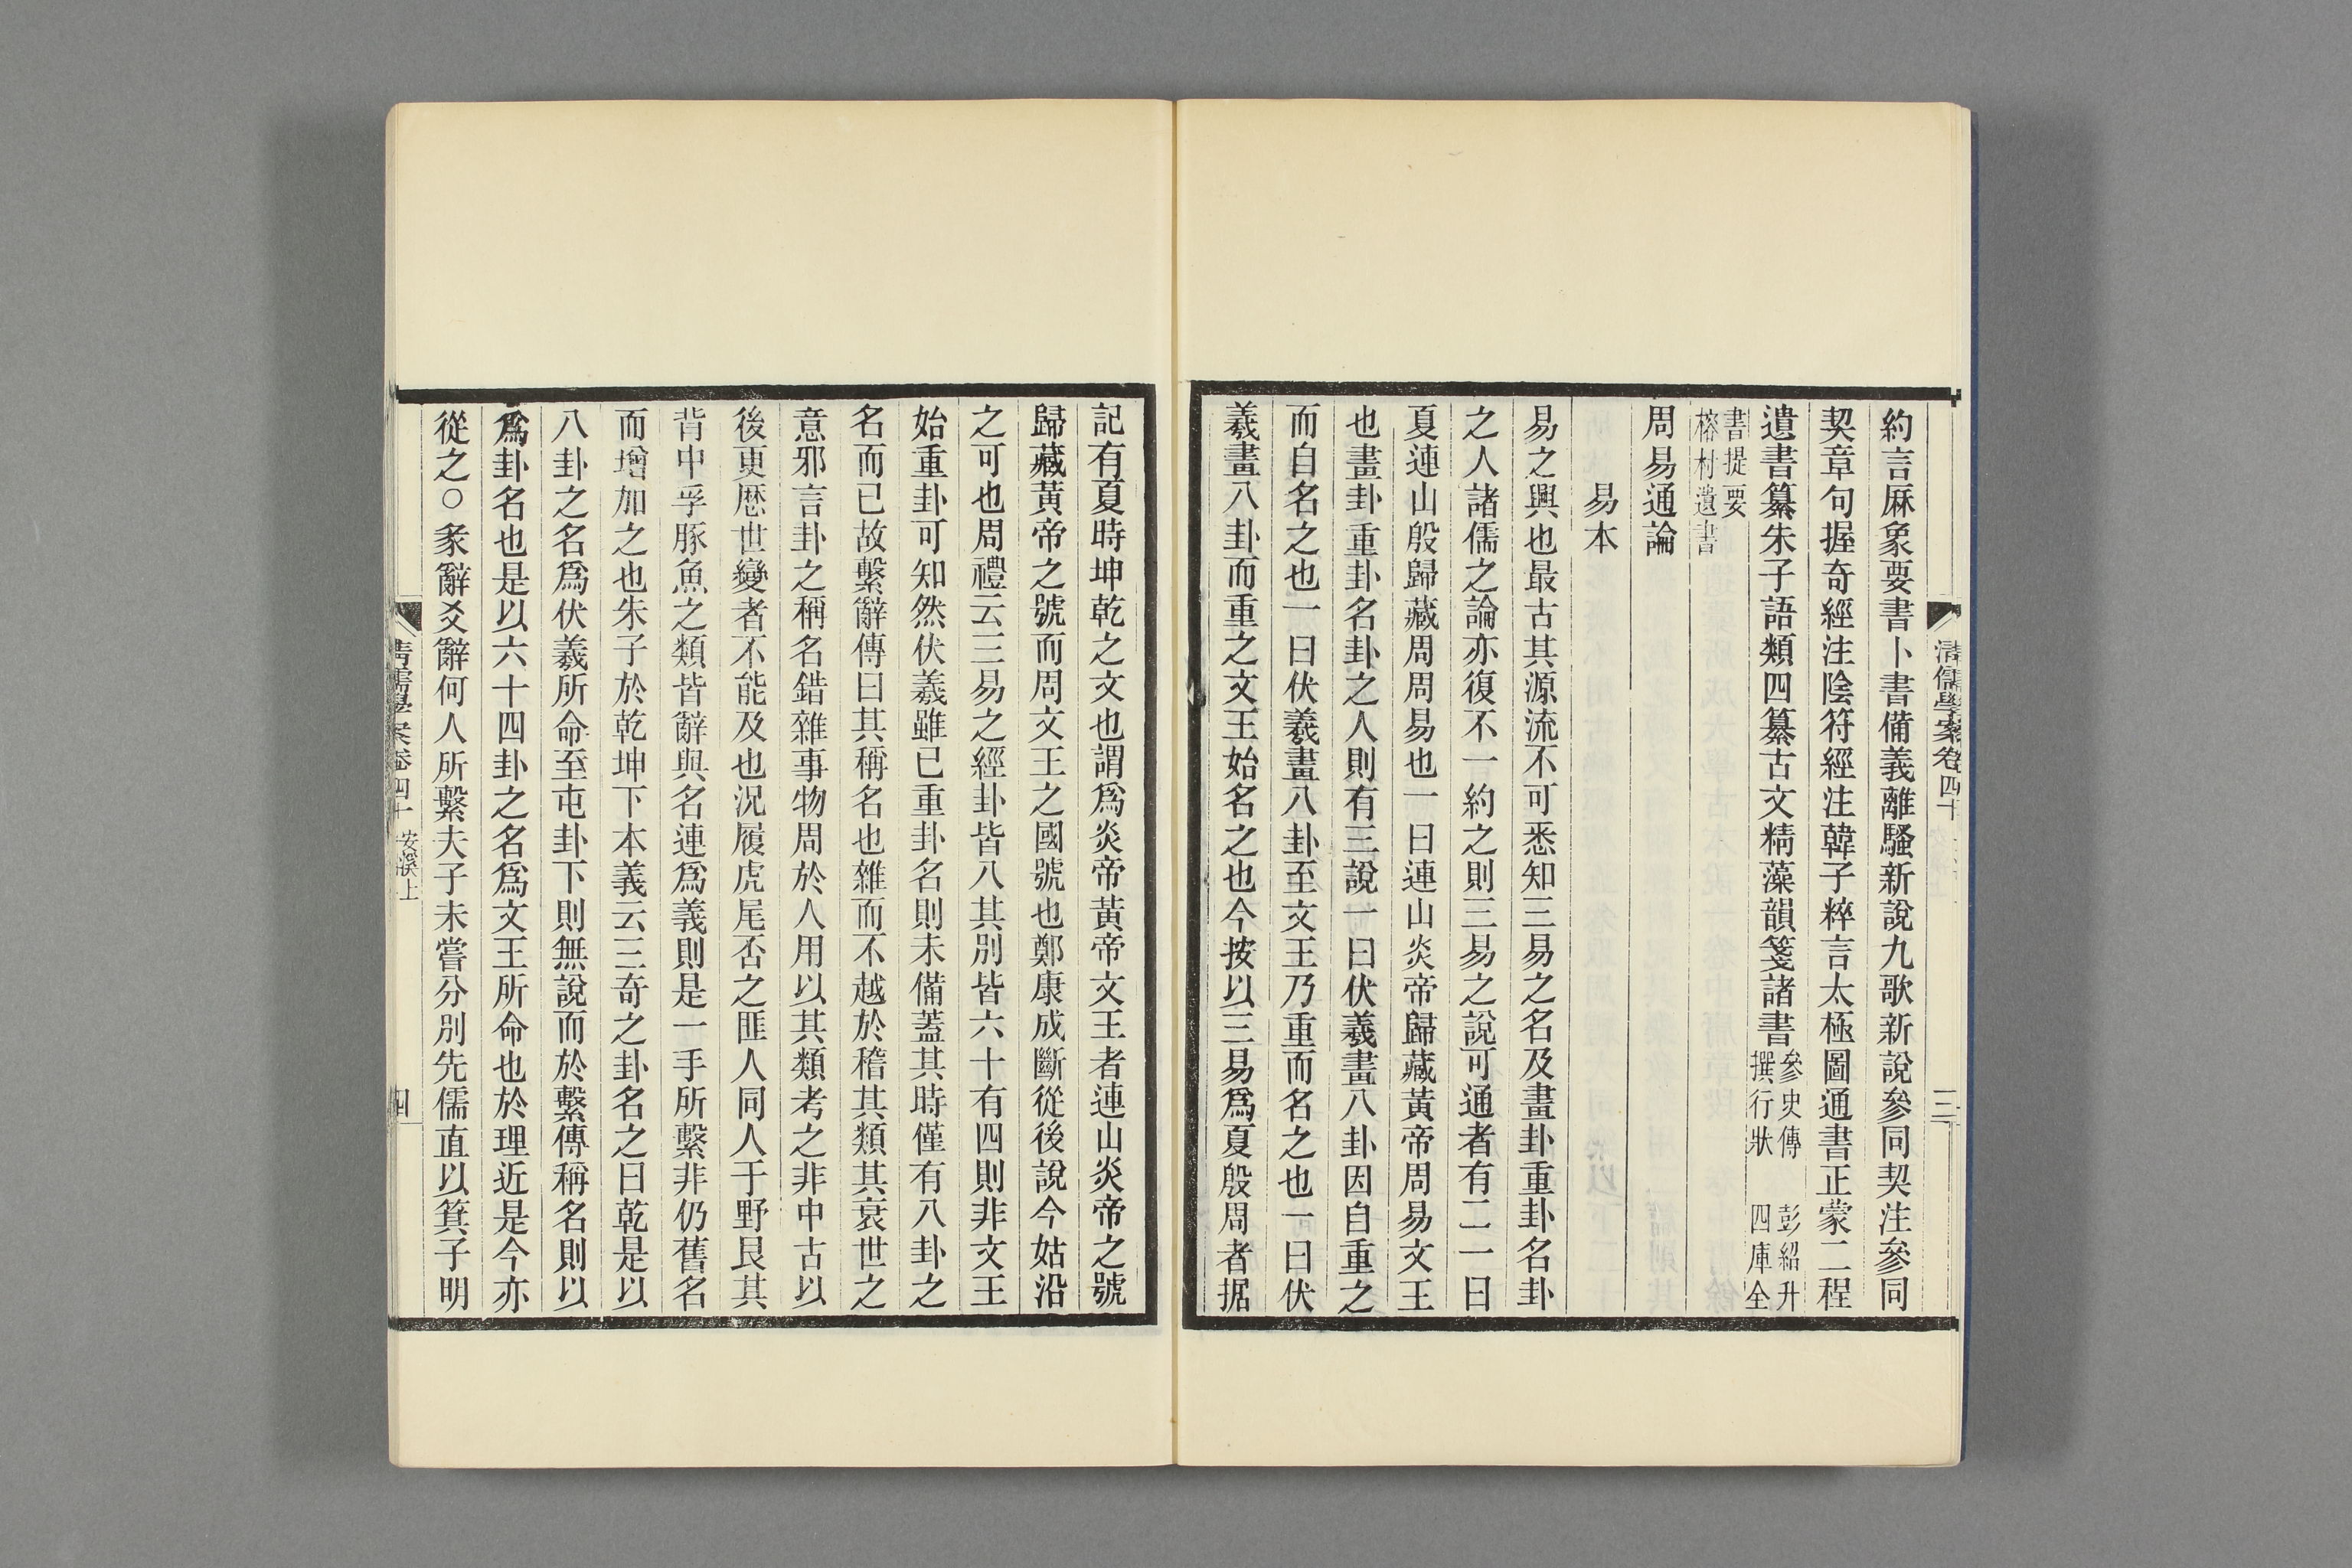 清儒學案卷四十
三
約言厤象要書卜書備義離騷新說九歌新說參同契注參同
契章句握奇經注陰符經注韓子粹言太極圖通書正蒙二程
遺書纂朱子語類四纂古文精藻韻箋諸書參史傳 彭紹升
撰行狀 四庫全
書提要
榕村遺書
周易通論
易本
易之興也最古其源流不可悉知三易之名及畫卦重卦名卦
之人諸儒之論亦復不一約之則三易之說可通者有二一曰
夏連山殷歸藏周周易也一曰連山炎帝歸藏黃帝周易文王
也畫卦重卦名卦之人則有三說一曰伏羲畫八卦因自重之
而自名之也一曰伏羲畫八卦至文王乃重而名之也一曰伏
羲畫八卦而重之文王始名之也今按以三易爲夏殷周者据
記有夏時坤乾之文也謂爲炎帝黃帝文王者連山炎帝之號
歸藏黃帝之號而周文王之國號也鄭康成斷從後說今姑沿
之可也周禮云三易之經卦皆八其別皆六十有四則非文王
始重卦可知然伏羲雖已重卦名則未備蓋其時僅有八卦之
名而已故繫辭傳曰其稱名也雜而不越於稽其類其衰世之
意邪言卦之稱名錯雜事物周於人用以其類考之非中古以
後更歷世變者不能及也況履虎尾否之匪人同人于野艮其
背中孚豚魚之類皆辭與名連爲義則是一手所繫非仍舊名
而增加之也朱子於乾坤下本義云三奇之卦名之曰乾是以
八卦之名爲伏羲所命至屯卦下則無說而於繫傳稱名則以
爲卦名也是以六十四卦之名爲文王所命也於理近是今亦
從之○彖辭爻辭何人所繫夫子未嘗分別先儒直以箕子明
清儒學案卷四十 安溪上
四